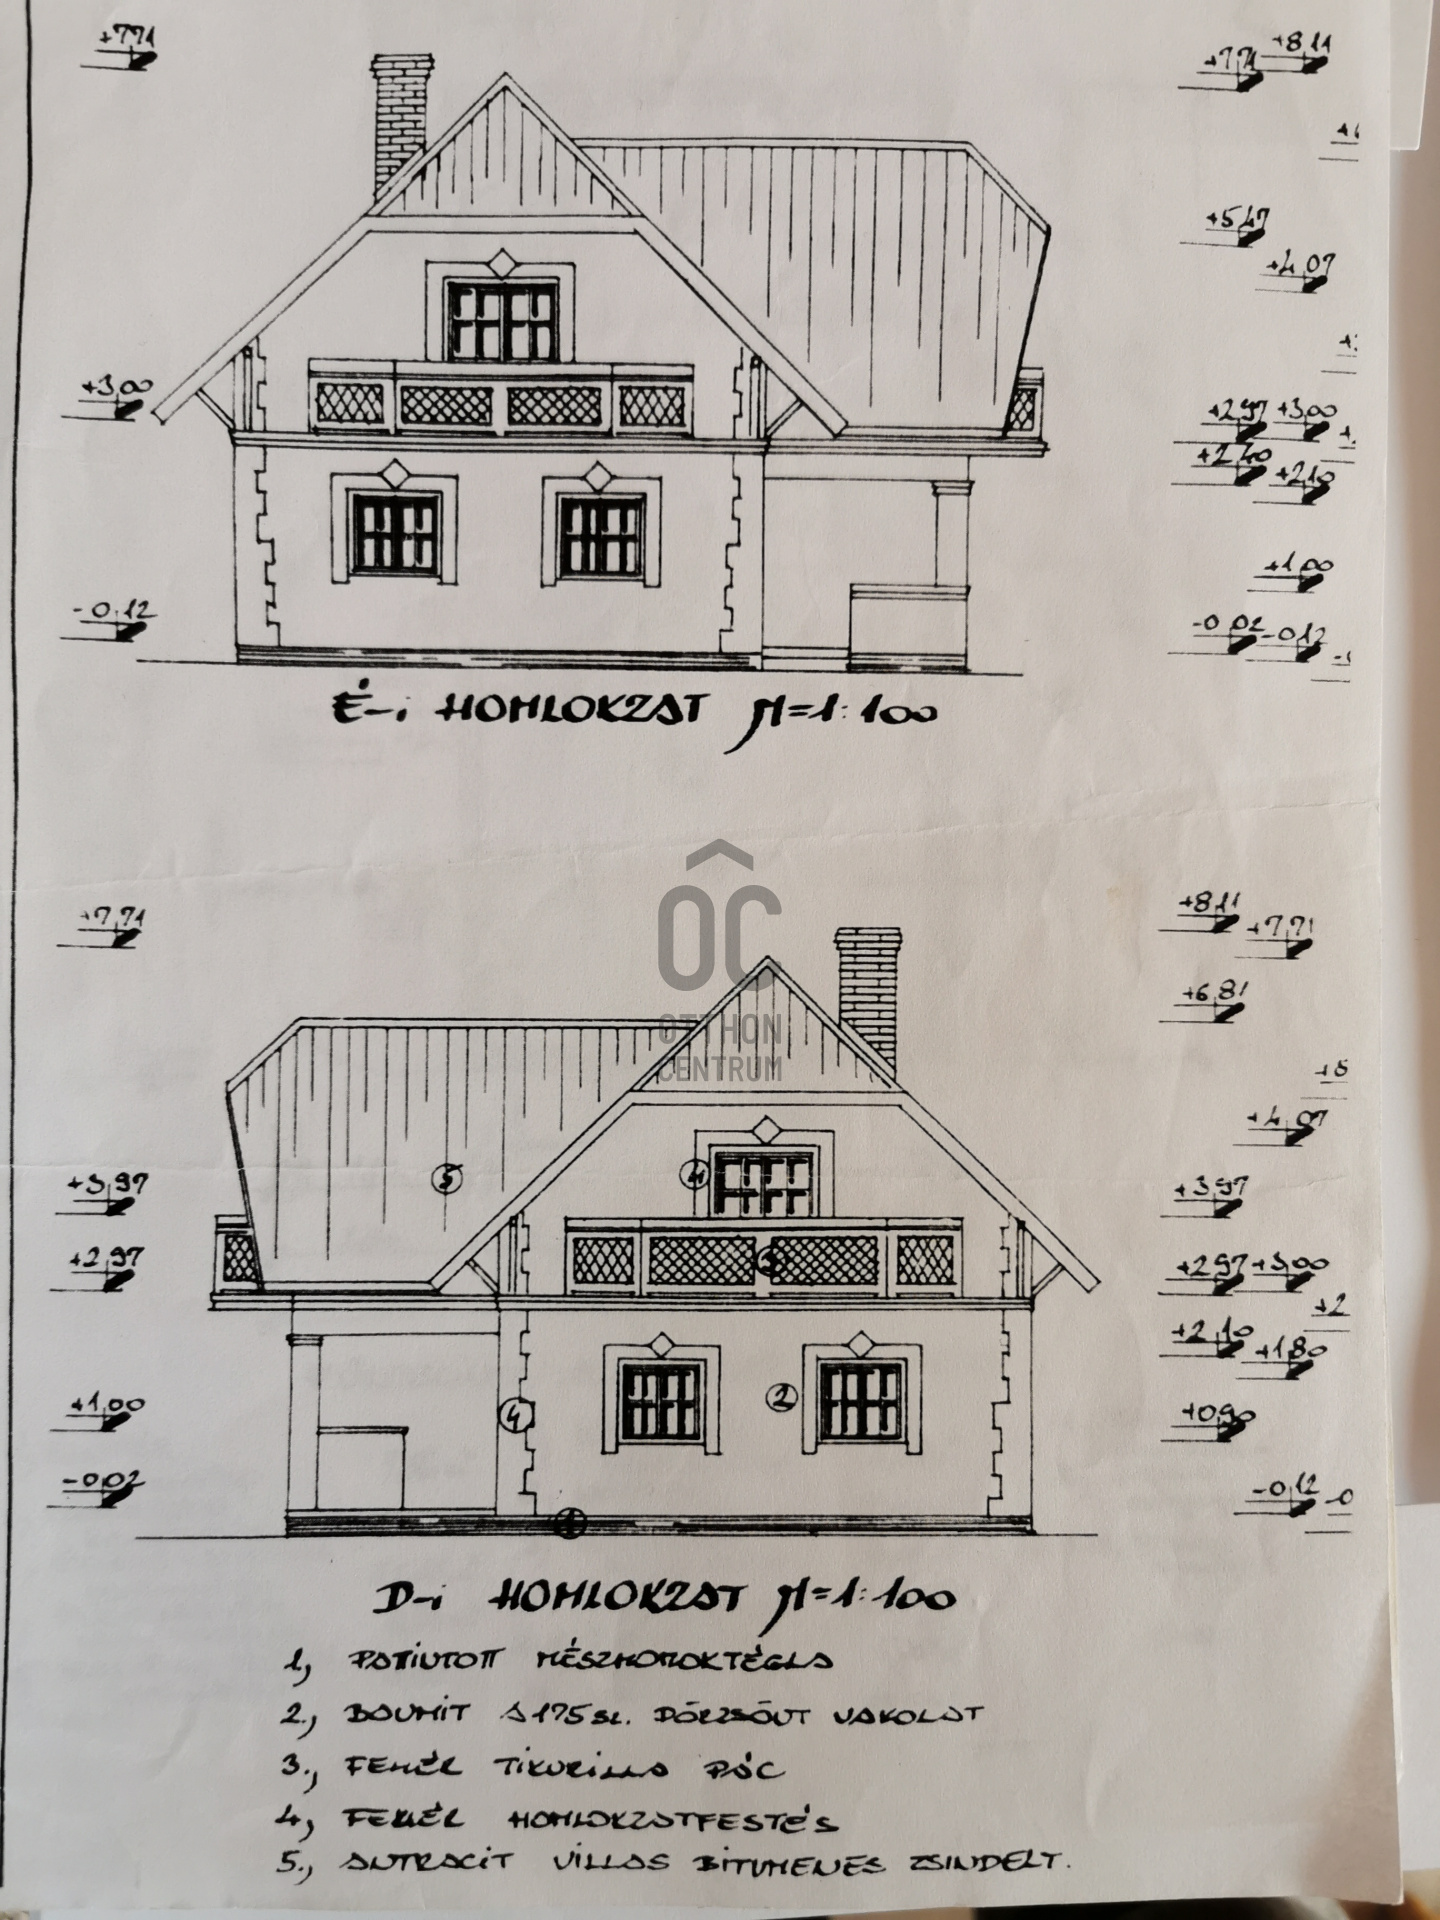 +7,71
+7,71 +8,11
+5,47
+4,07
+3,00
+2,97 +3,00
+2,40 +2,10
+1,00
-0,12
-0,02 -0,12
É-i HOMLOKZAT M=1:100
ÔC
OTTHON
CENTRUM
+7,71
+8,11 +7,71
+6,81
+4,07
+3,97
+3,97
+2,97
+2,97 +3,00
+2,10 +1,80
+1,00
+0,90
-0,02
-0,12
5
4
3
2
4
1
D-i HOMLOKZAT M=1:100
1, PATINTOTT MÉSZHOMOKTÉGLA
2., BAUMIT A175 sz. DÖRZSÖLT VAKOLAT
3., FEHÉR TIKURILLA PÁC
4, FEHÉR HOMLOKZATFESTÉS
5., ANTRACIT VILLAS BITUMENES ZSINDELY.